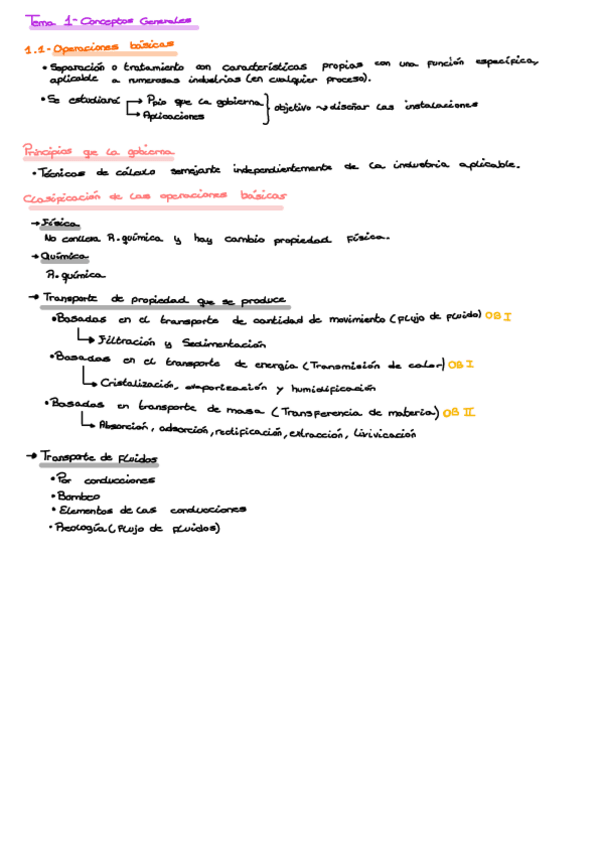 Tema 1-Conceptos Generales
1.1-Operaciones básicas
• Separación o tratamiento con características propias con una función específica,
aplicable a numerosas industrias (en cualquier proceso).
• Se estudiará → Ppio que la gobierna } objetivo → diseñar las instalaciones
→ Aplicaciones
Principios que la gobierna
• Técnicas de cálculo semejante independientemente de la industria aplicable.
Clasificación de las operaciones básicas
→ Física
No conlleva R.química y hay cambio propiedad física.
→ Química
R.química
→ Transporte de propiedad que se produce
• Basadas en el transporte de cantidad de movimiento (flujo de fluido) OB I
→ Filtración y Sedimentación
• Basadas en el transporte de energía (Transmisión de calor) OB I
→ Cristalización, evaporización y humidificación
• Basadas en transporte de masa (Transferencia de materia) OB II
→ Absorción, adsorción, rectificación, extracción,
→ Transporte de Fluidos
• Por conducciones
• Bombeo
• Elementos de las conducciones
• Reología (Flujo de fluidos)